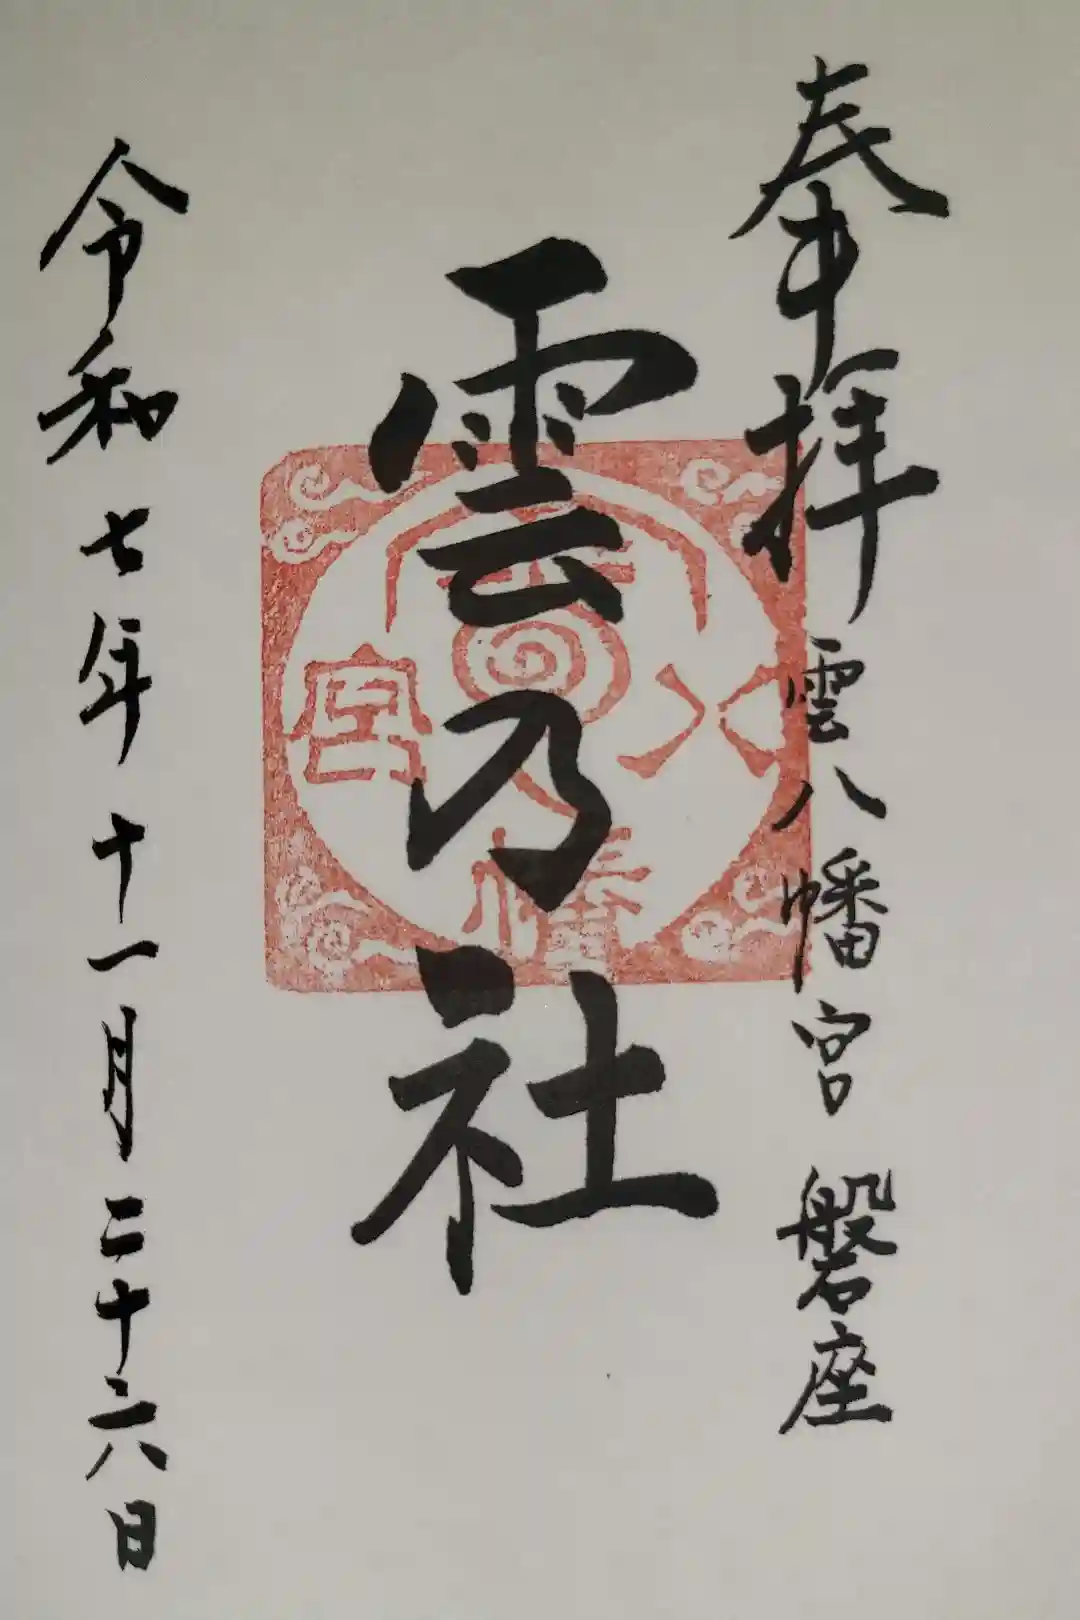 奉拝 雲八幡宮 磐座
雲乃社
令和七年十一月二十六日
雲八幡宮